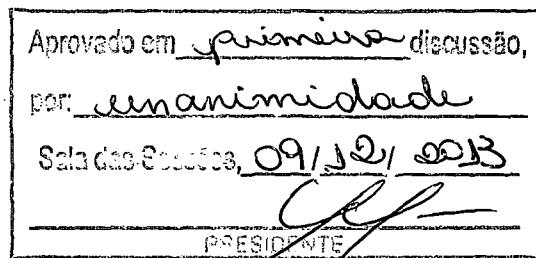 Aprovado em primeira discussão,
por: unanimidade
Sala das Sessões, 09/12/2013
PRESIDENTE